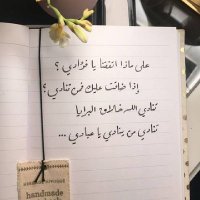 على ماذا اتفقنا يا فؤادي ؟
إذا ضاقت عليك فمن تنادي ؟
تنادي الله خلاق البرايا
تنادي من ينادي يا عبادي ...
handmade